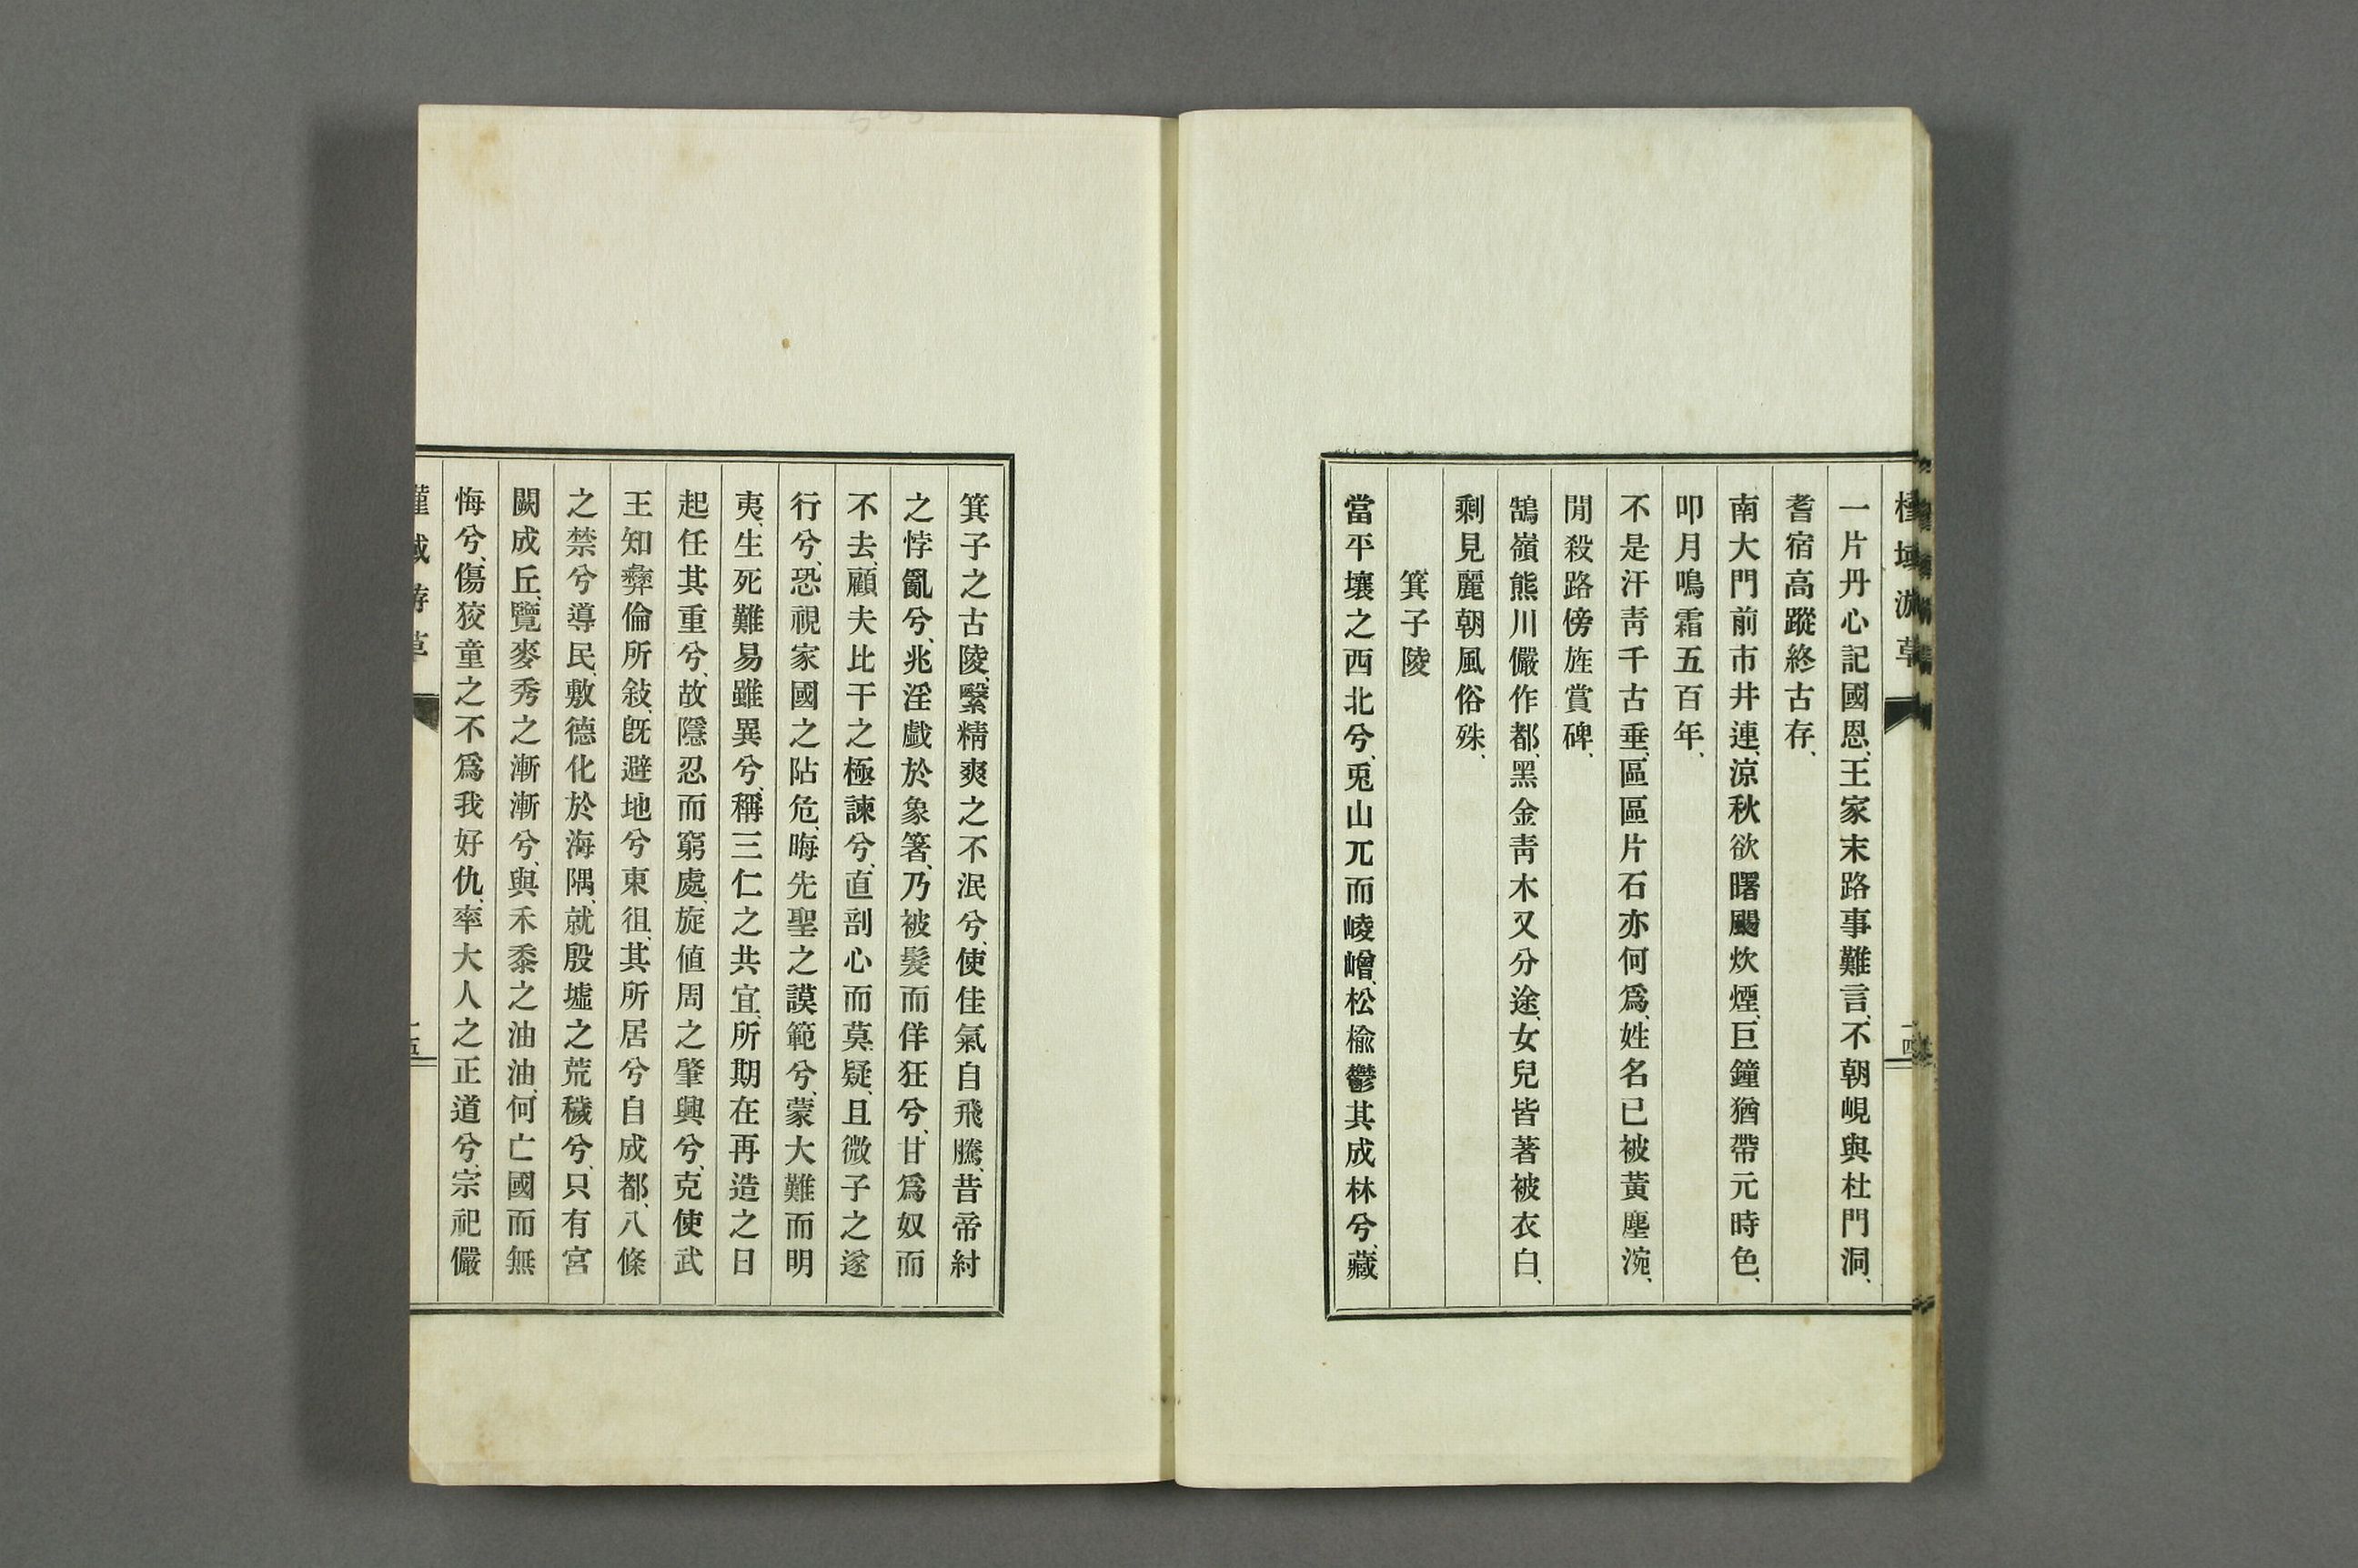 槿域游草
一四
一片丹心記國恩、王家末路事難言、不朝峴與杜門洞、
耆宿高蹤終古存、
南大門前市井連、涼秋欲曙颺炊煙、巨鐘猶帶元時色、
叩月鳴霜五百年、
不是汗靑千古垂、區區片石亦何爲、姓名已被黃塵涴、
閒殺路傍旌賞碑、
鵠嶺熊川儼作都、黑金靑木又分途、女兒皆著被衣白、
剩見麗朝風俗殊、
箕子陵
當平壤之西北兮、兎山兀而崚嶒、松楡鬱其成林兮、藏
箕子之古陵、繄精爽之不泯兮、使佳氣自飛騰、昔帝紂
之悖亂兮、兆淫戲於象箸、乃被髮而佯狂兮、甘爲奴而
不去、顧夫比干之極諫兮、直剖心而莫疑、且微子之遂
行兮、恐視家國之阽危、晦先聖之謨範兮、蒙大難而明
夷、生死難易雖異兮、稱三仁之共宜、所期在再造之日
起任其重兮、故隱忍而窮處、旋値周之肇興兮、克使武
王知彝倫所敍、旣避地兮東徂、其所居兮自成都、八條
之禁兮導民、敷德化於海隅、就殷墟之荒穢兮、只有宮
闕成丘、覽麥秀之漸漸兮、與禾黍之油油、何亡國而無
悔兮、傷狡童之不爲我好仇、率大人之正道兮、宗祀儼
槿域游草
一五